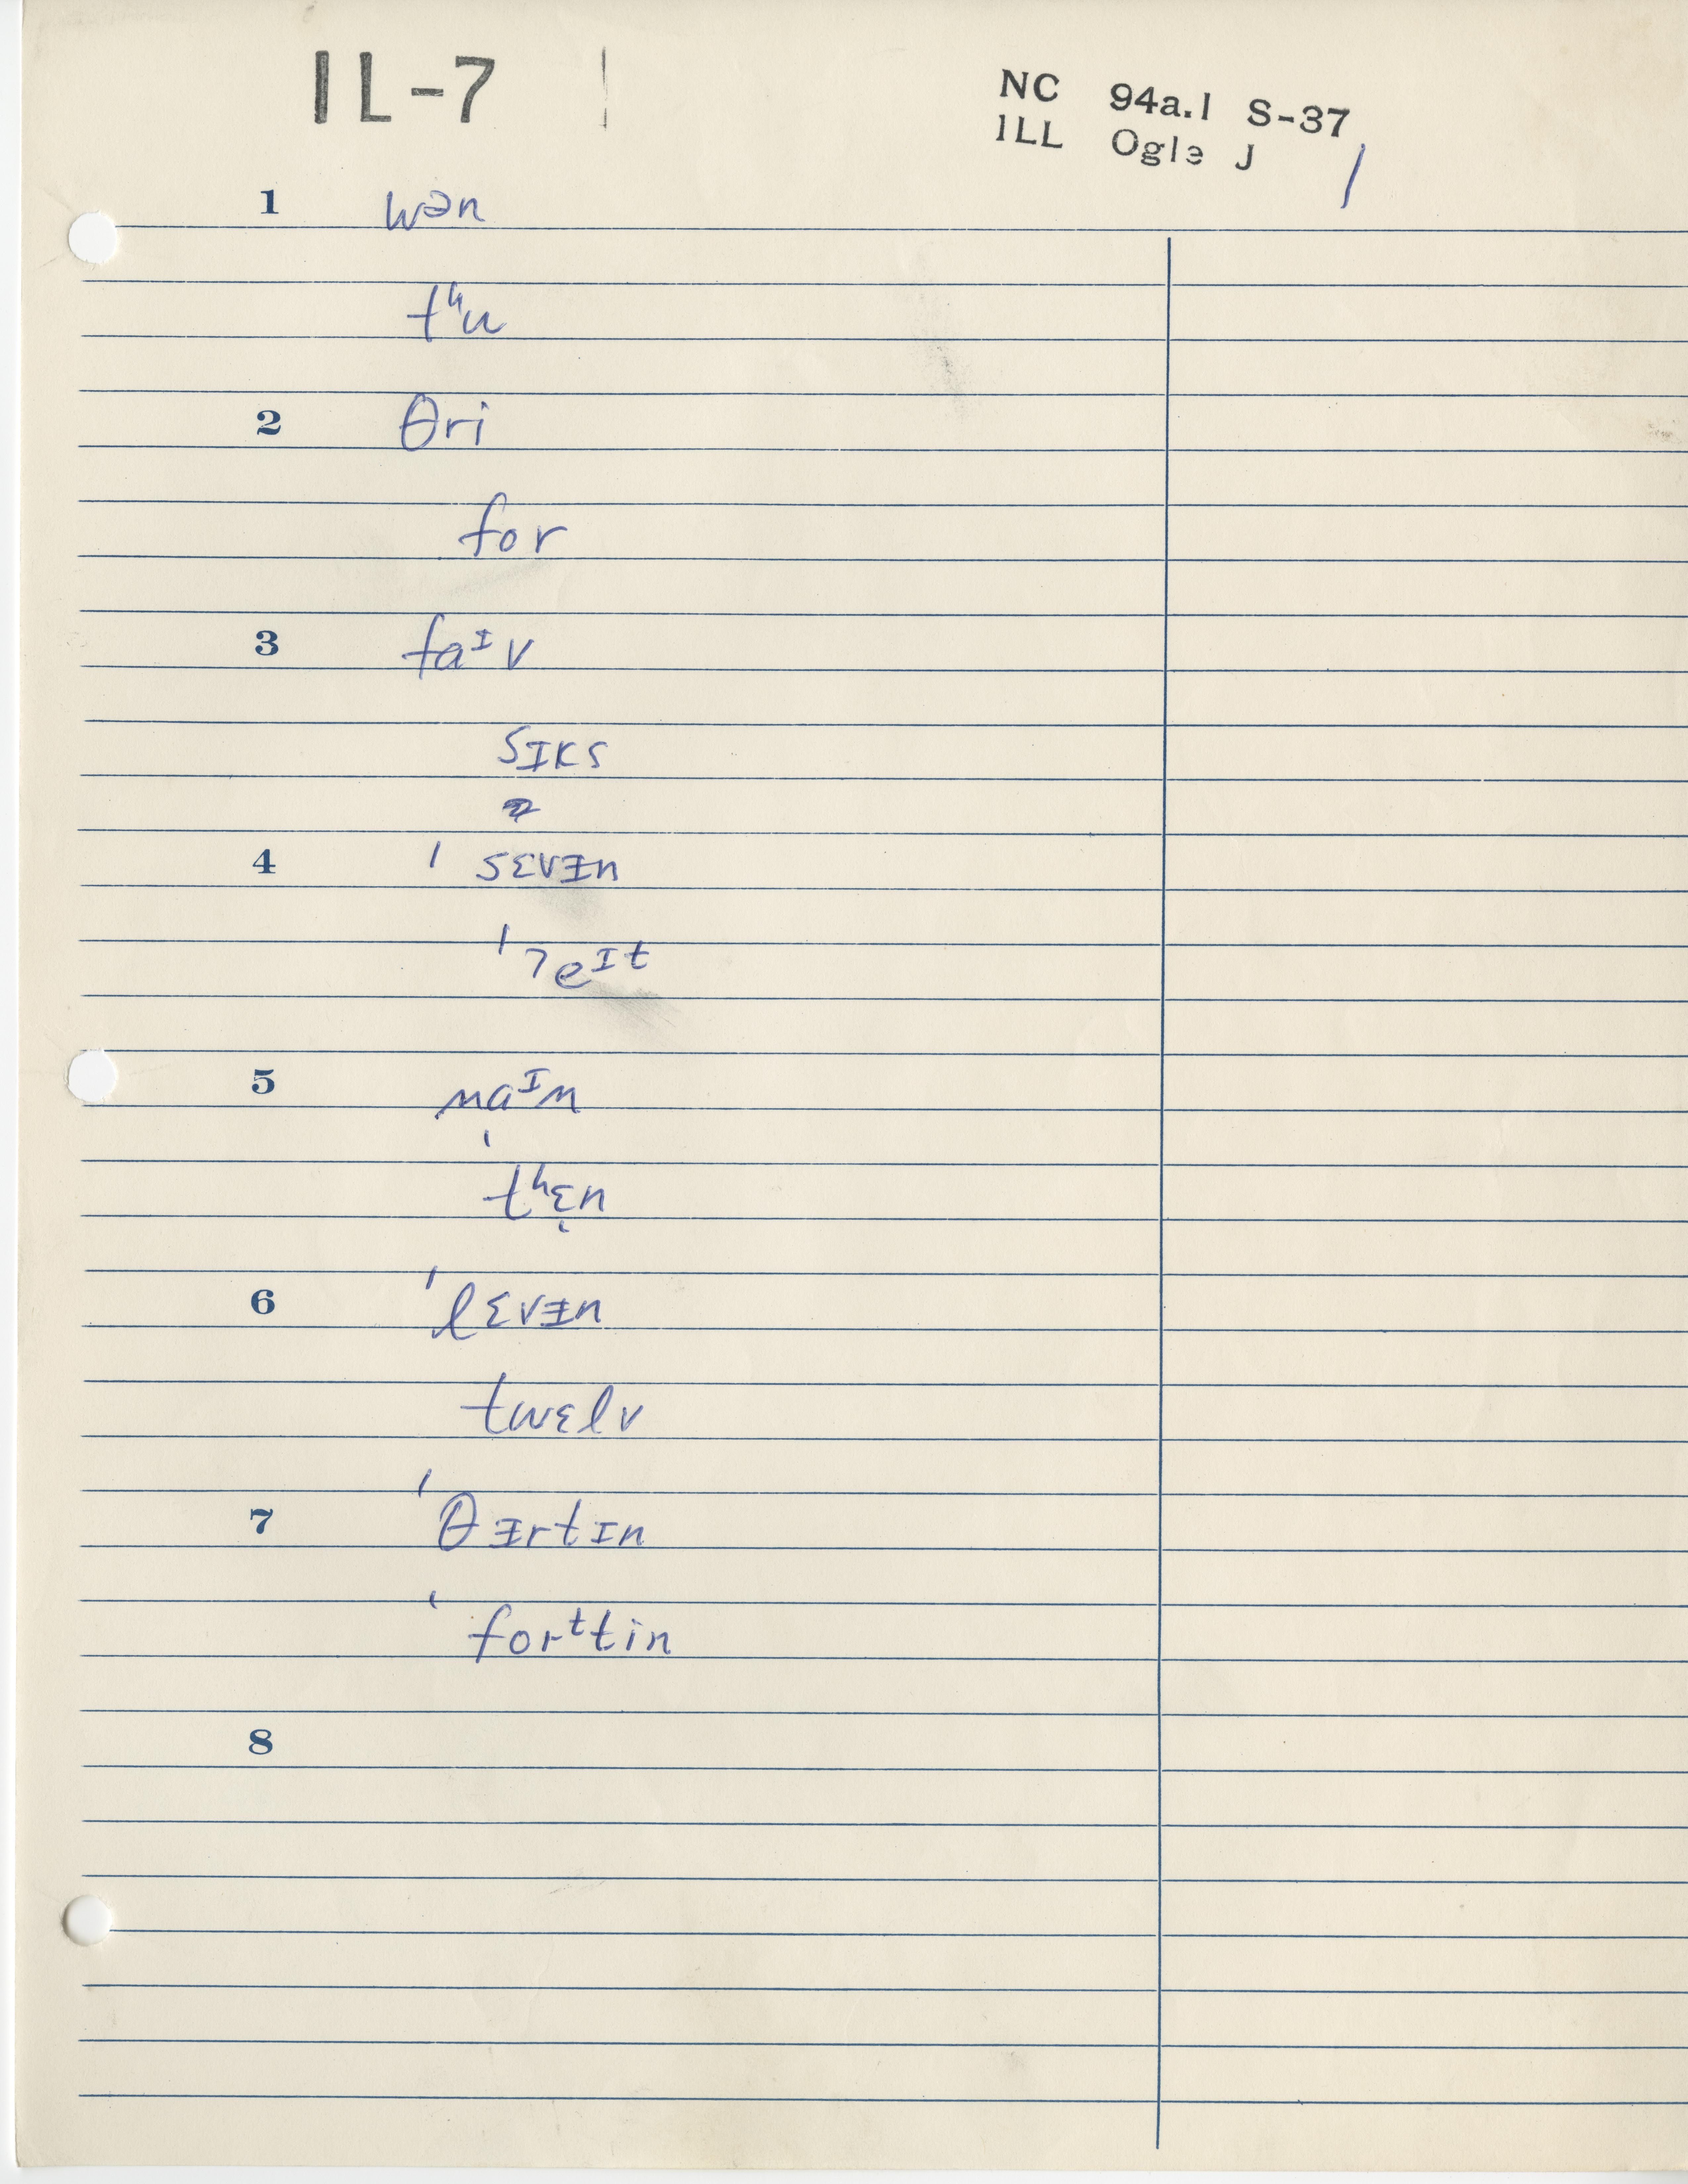 IL-7
NC 94a.1 S-37
ILL Ogle J
/
1 wən
tʰu
2 θri
for
3 faᴵv
sɪks
4 ˈsɛvᵻn
ˈʔeᴵt
5 naᴵn
ˈtʰɛ̜n
6 ˈlɛvᵻn
twɛlv
7 ˈθɜrtɪn
ˈforᵗtin
8